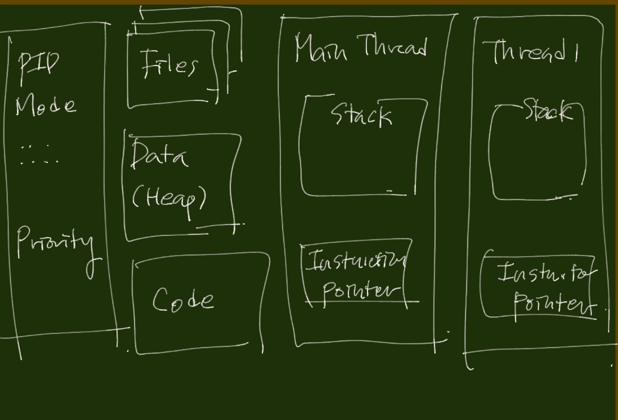 PID
Mode
Priority
Files
Data
(Heap)
Code
Main Thread
Stack
Instruction
Pointer
Thread 1
Stack
Pointer